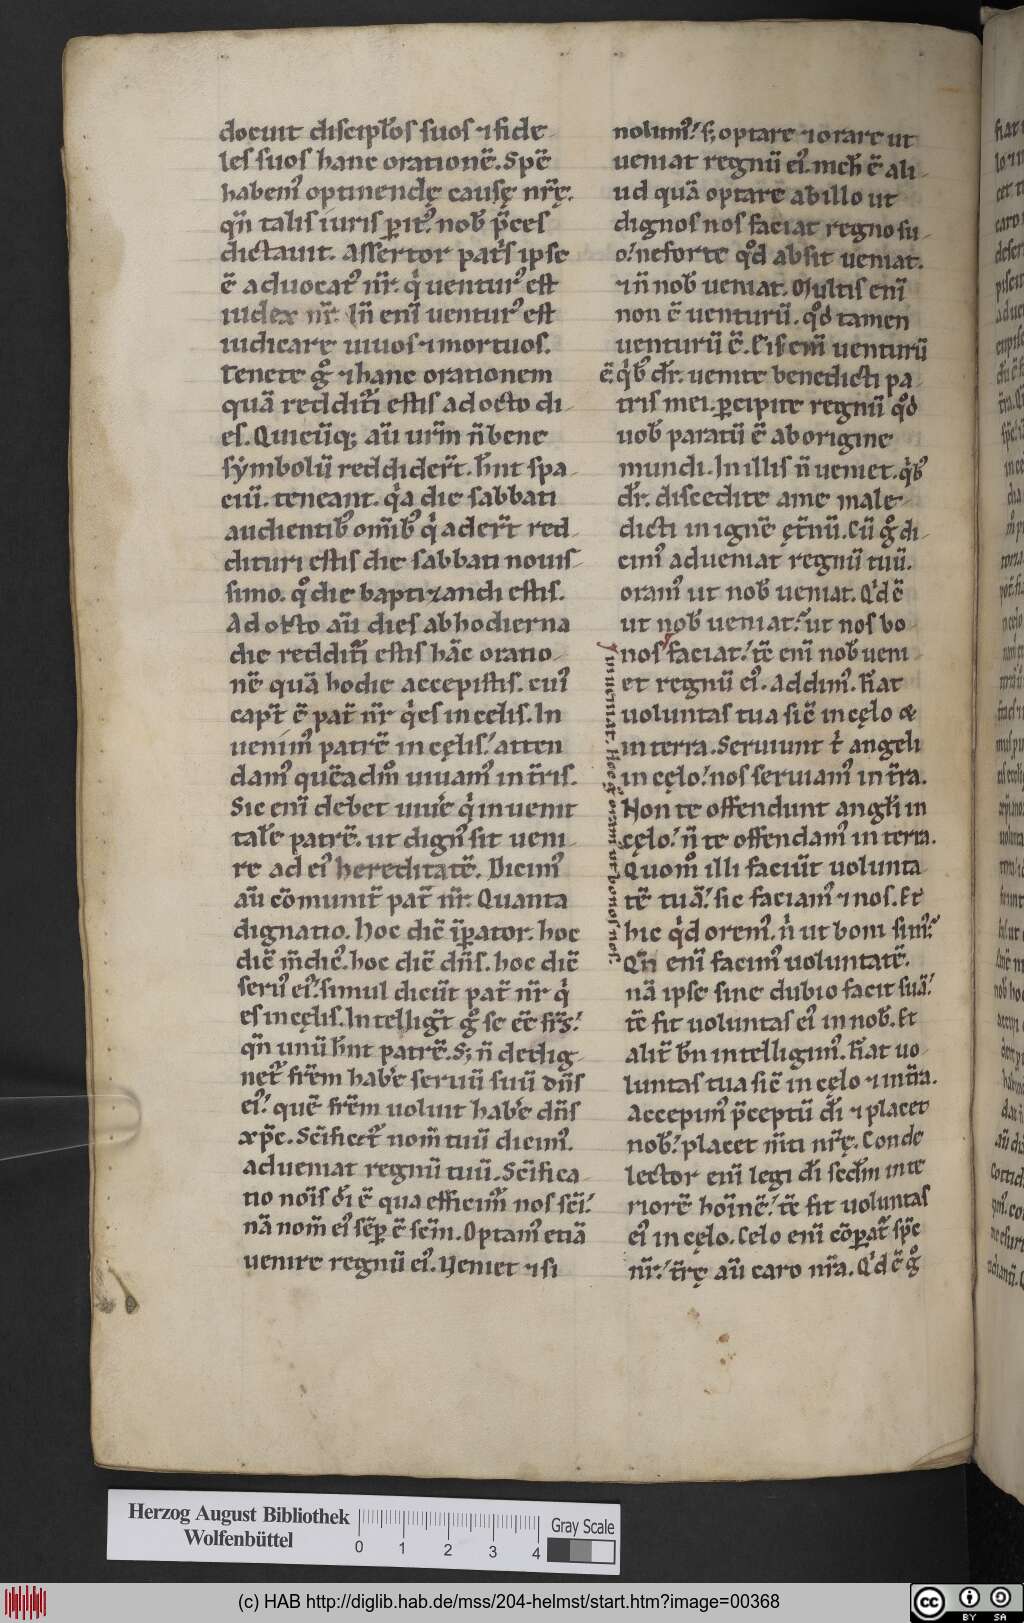 docuit discipl̄os suos ⁊ fide-
les suos hanc orationē. Spē
habem᷒ optinendę causę nr̄ę.
qn̄ talis iuris ꝑit᷒. nob̄ p̄ces
dictauit. Assertor patͥs ipse
ē aduocat᷒ nr̄. qͥ uentur᷒ est
iudex nr̄. In̄ eni̅ uentur᷒ est
iudicare uiuos ⁊ mortuos.
Tenete gͦ ⁊ hanc orationem
quā reddituͥ estis ad octo di-
es. Quicūq; aū urm̄ n̄ bene
sẏmbolū reddider̄t. hn̄t spa-
ciū. teneant. qͥa die sabbati
audientib᷒ om̄ib᷒ qͥ ader̄t red-
dituri estis die sabbati nouis-
simo. qͦ die baptizandi estis.
Ad octo aū dies ab hodierna
die reddituͥ estis hāc oratio-
nē quā hodie accepistis. cui᷒
capt̄ ē pat̄ nr̄ qͥ es in celis. In-
uenim᷒ patrē in cęlis.ˊ atten-
dam᷒ quēadm̊ uiuam᷒ in t̄ris.
Sic eni̅ debet uiuͤe qͥ inuenit
tal̄e patrē. ut dign᷒ sit ueni-
re ad ei᷒ hereditatē. Dicim᷒
aū cōmunit̄ pat̄ nr̄. Quanta
dignatio. hoc dic̄ īꝑator. hoc
dic̄ m̄dic᷒. hoc dic̄ dn̄s. hoc dic̄
seru᷒ ei᷒.ˊ simul dicūt pat̄ nr̄ qͥ
es in cęlis. Intelligt̄ gͦ se ēe fr̄s.ˊ
qn̄ unū hn̄t patrē. S; n̄ dedig-
net᷒ fr̄em habͤe seruū suū dn̄s
ei᷒.ˊ quē fr̄em uoluit habͤe dn̄s
xp̄c. Sc̄ificet᷒ nom̄ tuū dicim᷒.
adueniat regnū tuū. Sc̄ifica-
tio noīs dī ē qua efficim᷒ nos sc̄i.ˊ
nā nom̄ ei᷒ sēꝑ ē sc̄m. Optam᷒ etiā
uenire regnū ei᷒. Ueniet ⁊ si
nolum᷒.ˊ s; optare ⁊ orare ut
ueniat regnū ei᷒. nich̄ ē ali-
ud quā optare ab illo ut
dignos nos faciat regno su-
o.ˊ ne forte qͦd absit ueniat.
⁊ n̄ nob̄ ueniat. Multis eni̅
non ē uenturū. qͦd tamen
uenturū ē. Eis eni̅ uenturū
ē. qͥb᷒ dr̄. uenite benedicti pa-
tris mei. ꝑcipite regnū qͦd
uob̄ paratū ē ab origine
mundi. In illis n̄ ueniet. qͥb᷒
dr̄. discedite a me male-
dicti in ignē ęt̄nū. Cū gͦ di-
cim᷒ adueniat regnū tuū.
oram᷒ ut nob̄ ueniat. Qͥd ē
ut nob̄ ueniat.ˀ ut nos bo-
nos faciat.ˊ tē eni̅ nob̄ ueni-
et regnū ei᷒. Addim᷒. Fiat
uoluntas tua sic̄ in cęlo &
in terra. Seruiunt tͥ angeli
in cęlo.ˊ nos seruiam᷒ in t̄ra.
Non te offendunt angl̄i in
cęlo.ˊ n̄ te offendam᷒ in terra.
Quom̊ illi faciūt uolunta-
tē tuā.ˊ sic faciam᷒ ⁊ nos. Et
hic qͥd orem᷒. nͥ ut boni sim᷒.ˀ
Qn̄ eni̅ facim᷒ uoluntatē.
nā ipse sine dubio facit suā.ˊ
tē fit uoluntas ei᷒ in nob̄. Et
alit̄ bn̄ intelligim᷒. Fiat uo-
luntas tua sic̄ in cęlo ⁊ in t̄ra.
Accepim᷒ p̄ceptū dī ⁊ placet
nob̄.ˊ placet m̄ti nr̄ę. Conde-
lector eni̅ legi dī sedm̄ inte-
riorē hoīnē.ˊ tē fit uoluntas
ei᷒ in cęlo. Celo eni̅ cōꝑat᷒ sp̄c
nr̄.ˊ t̄rę aū caro nr̄a. Qͥd ē gͦ
inueniat. Hoc gͦ oram᷒ ut bonos nos.
Herzog August Bibliothek
Wolfenbüttel
0 1 2 3 4
Gray Scale
(c) HAB http://diglib.hab.de/mss/204-helmst/start.htm?image=00368
cc BY SA